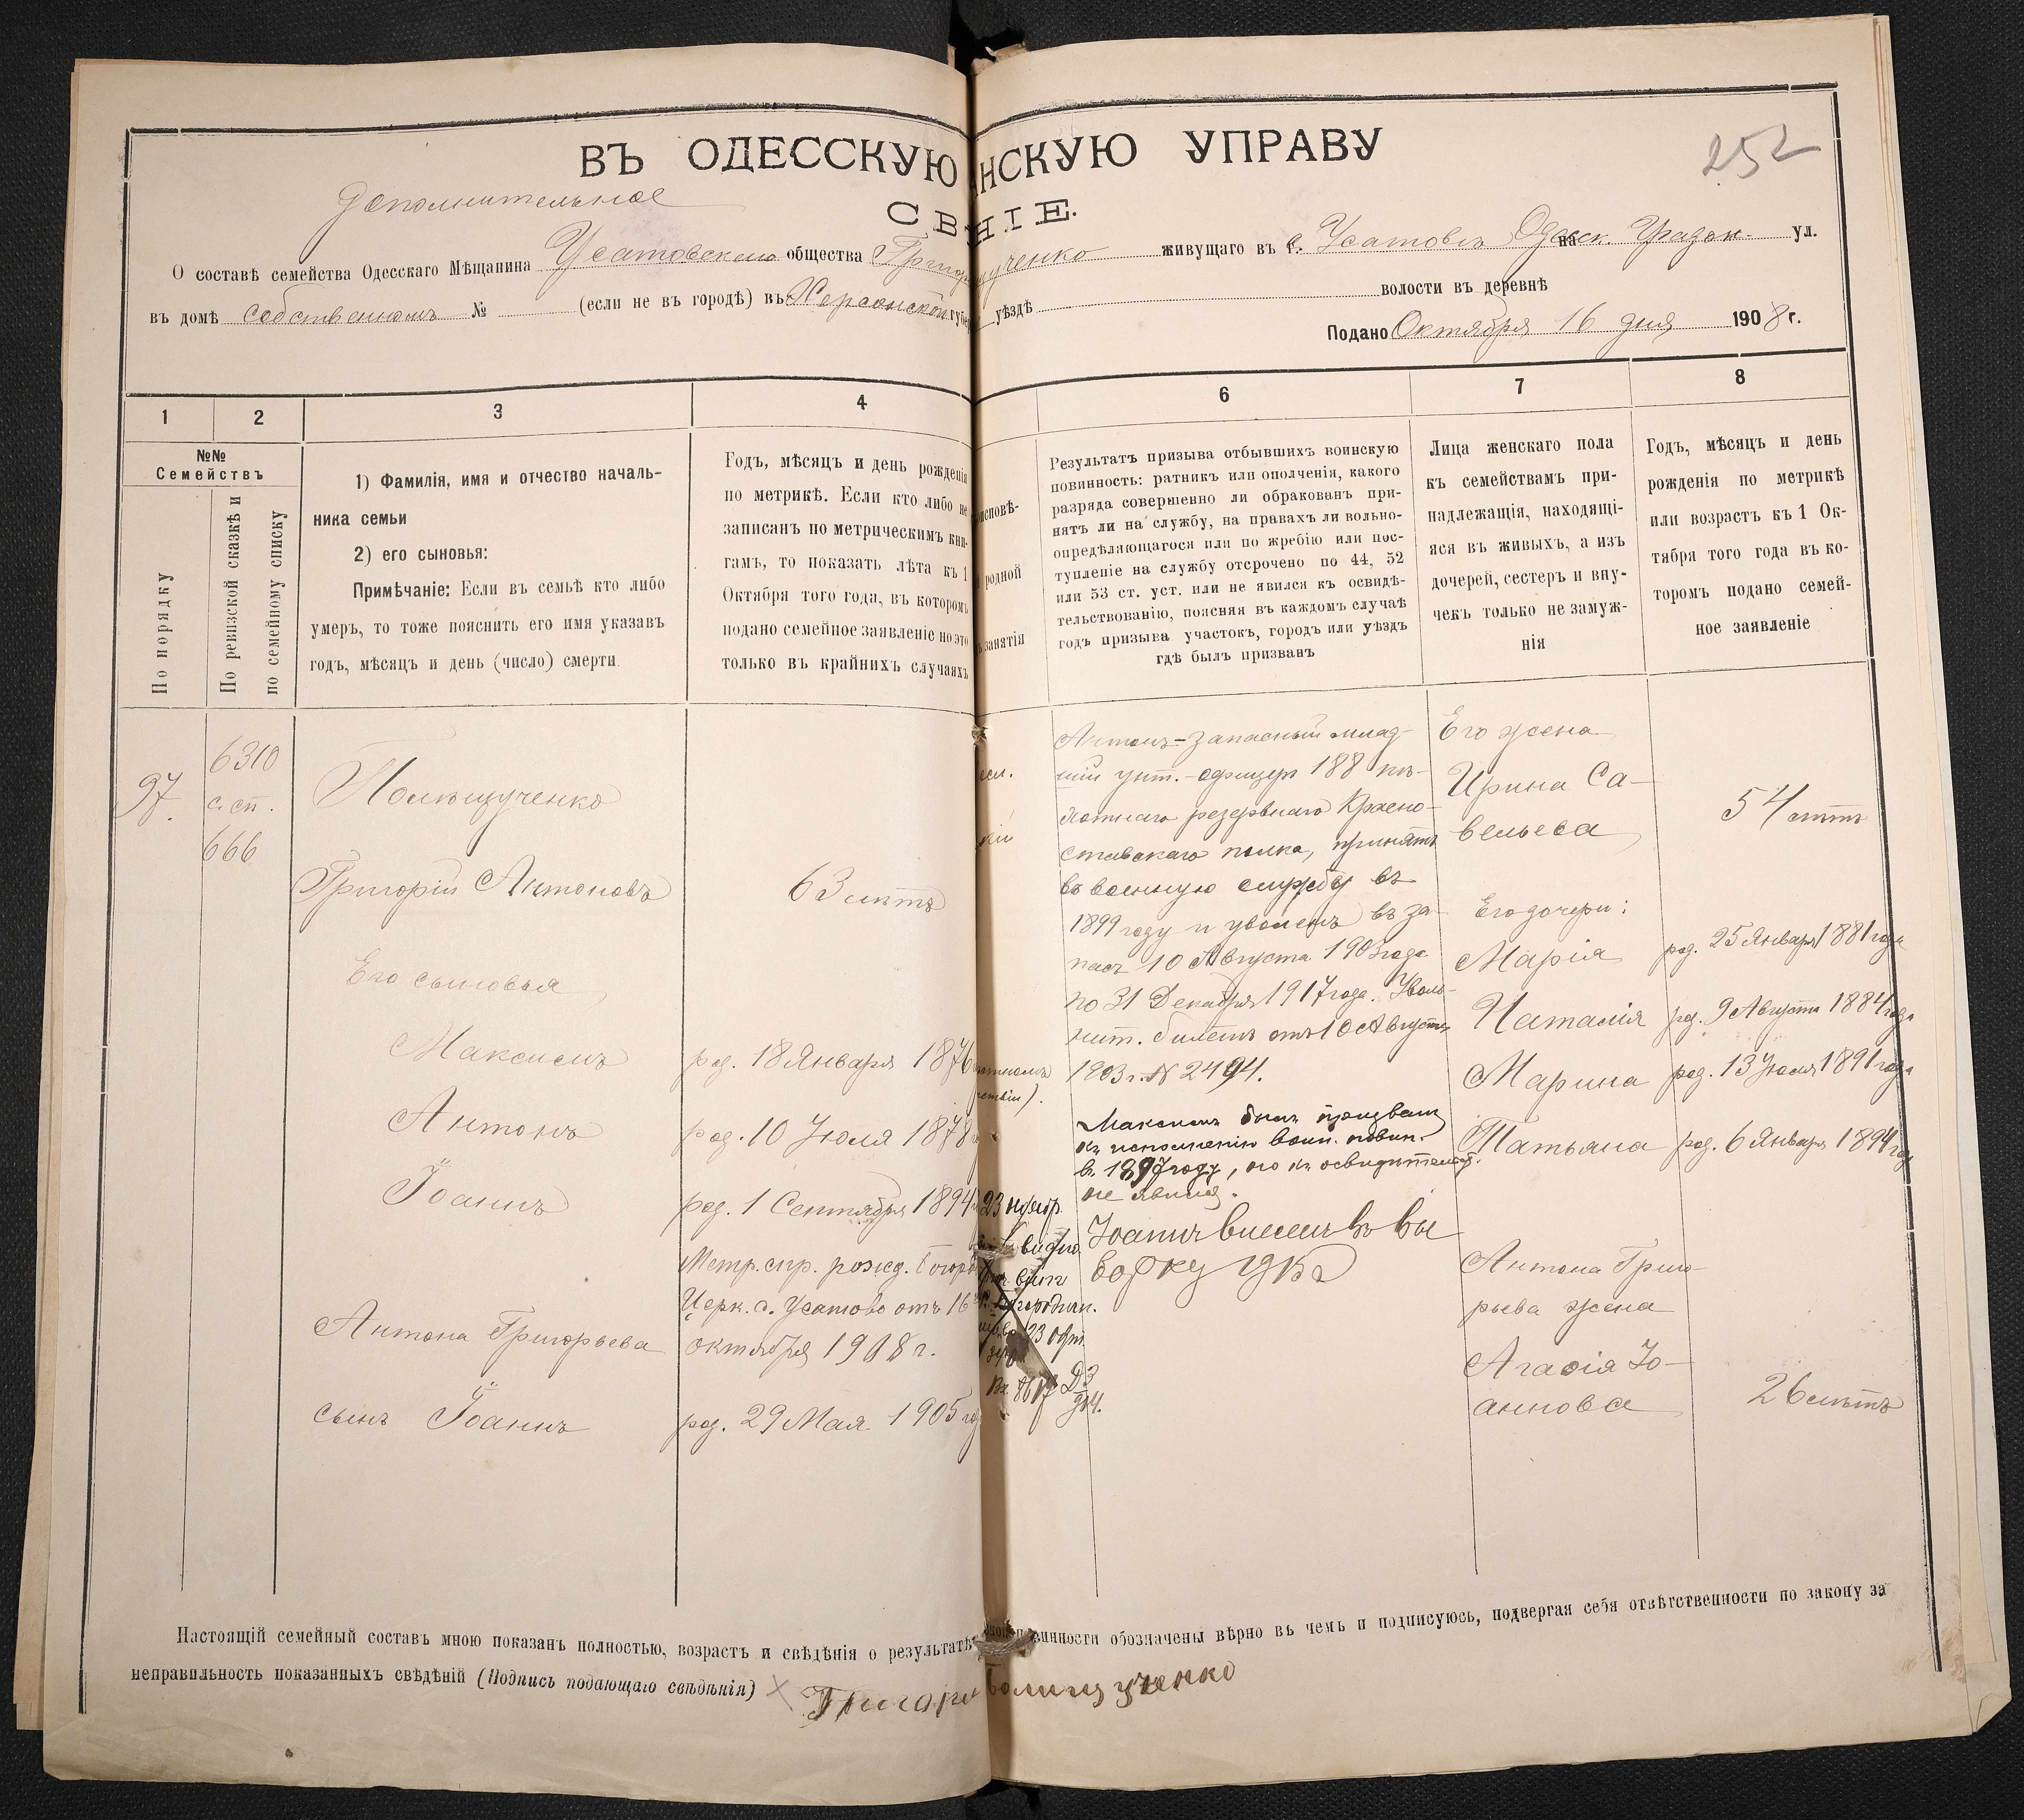 ВЪ ОДЕССКУЮ НСКУЮ УПРАВУ
252
Дополнительное
СВ НІЕ.
О составѣ семейства Одесскаго Мѣщанина Усатовскаго общества Григ щученко живущаго въ с. Усатовѣ Одесск. Градон. на ул.
въ домѣ собственномъ № (если не въ городѣ) въ Херсонской губер уѣздѣ волости въ деревнѣ
Подано Октября 16 дня 1908 г.
1 2 3 4 6 7 8
№№
Семействъ
По порядку
По ревизской сказкѣ и
по семейному списку
1) Фамилія, имя и отчество началь-
ника семьи
2) его сыновья:
Примѣчаніе: Если въ семьѣ кто либо
умеръ, то тоже пояснить его имя указавъ
годъ, мѣсяцъ и день (число) смерти
Годъ, мѣсяцъ и день рожденія
по метрикѣ. Если кто либо не
записанъ по метрическимъ кни-
гамъ, то показать лѣта къ 1
Октября того года, въ которомъ
подано семейное заявленіе но это
только въ крайнихъ случаяхъ
исповѣ-
родной
занятія
Результатъ призыва отбывшихъ воинскую
повинность: ратникъ или ополченія, какого
разряда совершенно ли обракованъ при-
нятъ ли на службу, на правахъ ли вольно-
опредѣляющагося или по жребію или пос-
тупленіе на службу отсрочено по 44, 52
или 53 ст. уст. или не явился къ освидѣ-
тельствованію, поясняя въ каждомъ случаѣ
годъ призыва участокъ, городъ или уѣздъ
гдѣ былъ призванъ
Лица женскаго пола
къ семействамъ при-
надлежащія, находящі-
яся въ живыхъ, а изъ
дочерей, сестеръ и вну-
чекъ только не замуж-
нія
Годъ, мѣсяцъ и день
рожденія по метрикѣ
или возрастъ къ 1 Ок-
тября того года въ ко-
торомъ подано семей-
ное заявленіе
97.
6310
с. сп.
666
Полищученко
Григорій Антоновъ
63 лѣтъ
Его сыновья
Максимъ
род. 18 Января 1876
Антонъ
род. 10 Июля 1878
Іоаннъ
род. 1 Сентября 1894
Метр. спр. рожд. Богор
Церк. с. Усатово отъ 16
октября 1908 г.
Антона Григорьева
сынъ Іоаннъ
род. 29 Мая 1905 го
23 октяб.
видно
Богородичн.
23 окт.
Антонъ-запасный млад-
шій унт.-офицеръ 188 пѣ-
хотнаго резервнаго Красно-
ставскаго полка, принятъ
въ военную службу въ
1899 году и уволенъ въ за-
пасъ 10 Августа 1903 года
по 31 Декабря 1917 года. Уволь-
нит. билетъ отъ 10 Августа
1903 г. № 2494.
Максимъ былъ призванъ
къ исполненію воин. повин.
въ 1897 году, но къ освидѣтельст.
не явился.
Іоаннъ внесенъ въ вы
борку 1915 г
Его жена
Ирина Са-
вельева
54 лѣтъ
Его дочери:
Марія
род. 25 Января 1881 года
Наталія
род. 9 Августа 1884 года
Марина
род. 13 Июля 1891 года
Татьяна
род. 6 Января 1894 год
Антона Григо-
рьева жена
Агафія Іо-
аннова
26 лѣтъ
Настоящій семейный составъ мною показанъ полностью, возрастъ и свѣдѣнія о результатѣ винности обозначены вѣрно въ чемъ и подписуюсь, подвергая себя отвѣтственности по закону за
неправильность показанныхъ свѣдѣній (Подпись подающаго свѣдѣнія) Григори Полищученко